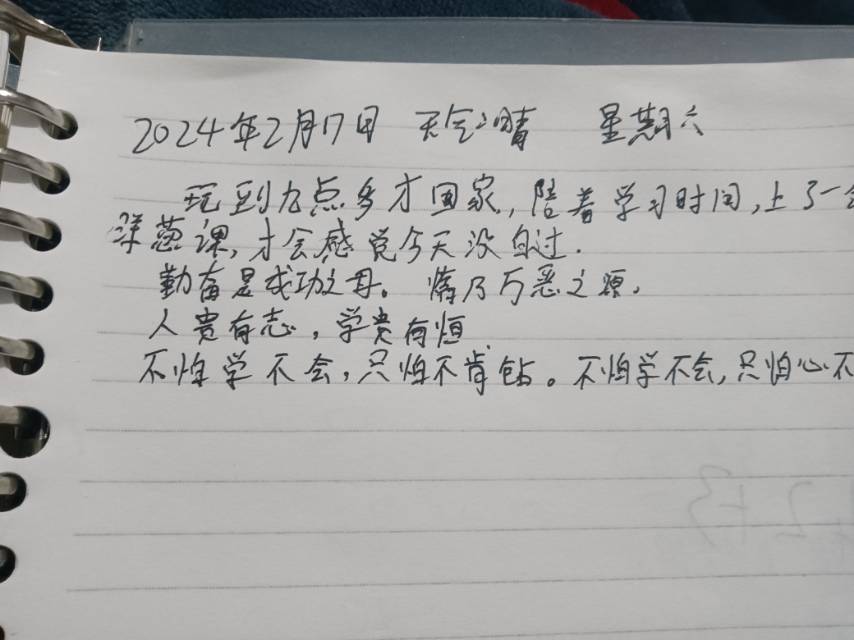 2024年2月17日 天气:晴 星期六
玩到九点多才回家,陪着学习时间,上了一会
洋葱课,才会感觉今天没白过.
勤奋是成功之母。惰乃万恶之源.
人贵有志,学贵有恒
不怕学不会,只怕不肯钻。不怕学不会,只怕心不